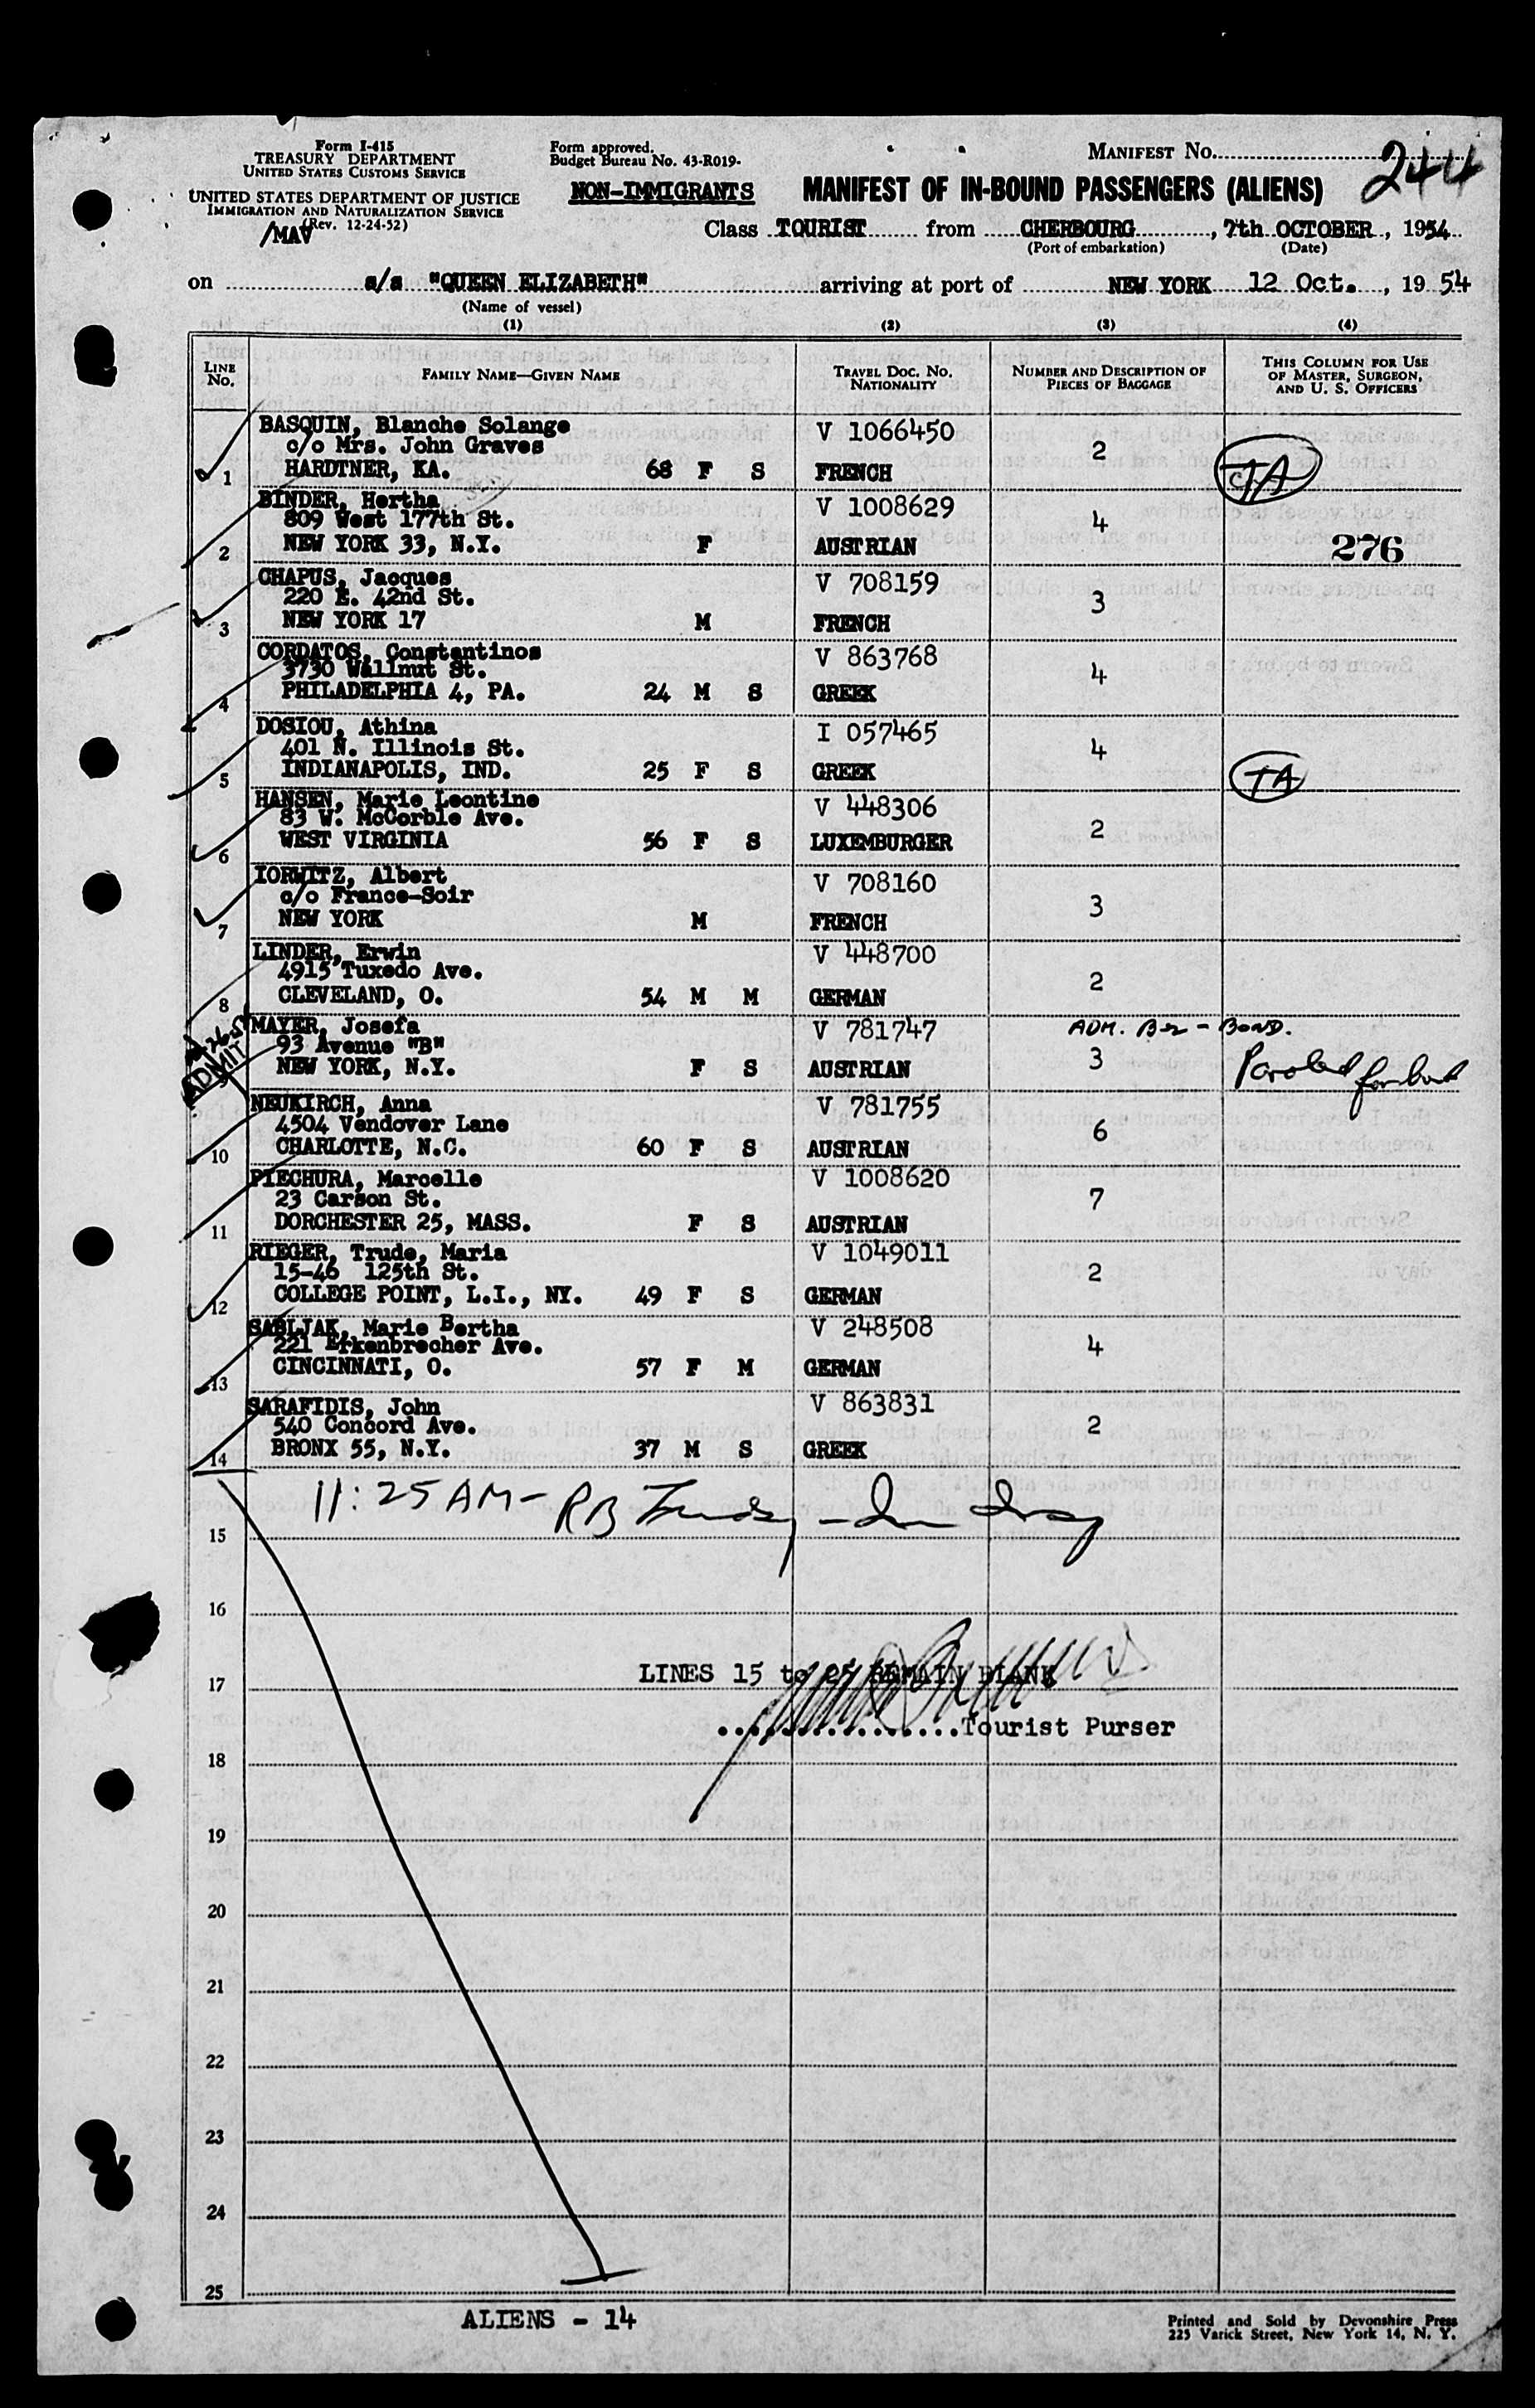 Form I-415
TREASURY DEPARTMENT
UNITED STATES CUSTOMS SERVICE
UNITED STATES DEPARTMENT OF JUSTICE
IMMIGRATION AND NATURALIZATION SERVICE
(Rev. 12-24-52)
/MAV
Form approved.
Budget Bureau No. 43-R019-
NON-IMMIGRANTS
MANIFEST NO. 244
MANIFEST OF IN-BOUND PASSENGERS (ALIENS)
Class TOURIST from CHERBOURG, 7th OCTOBER, 1954
(Port of embarkation) (Date)
on s/s "QUEEN ELIZABETH" arriving at port of NEW YORK 12 Oct., 1954
(Name of vessel)
(1) (2) (3) (4)
LINE NO. FAMILY NAME—GIVEN NAME TRAVEL DOC. NO. NATIONALITY NUMBER AND DESCRIPTION OF PIECES OF BAGGAGE THIS COLUMN FOR USE OF MASTER, SURGEON, AND U. S. OFFICERS
BASQUIN, Blanche Solange V 1066450
c/o Mrs. John Graves 2
1 HARDTNER, KA. 68 F S FRENCH TA
BINDER, Hertha V 1008629
809 West 177th St. 4
2 NEW YORK 33, N.Y. F AUSTRIAN 276
CHAPUS, Jacques V 708159
220 E. 42nd St. 3
3 NEW YORK 17 M FRENCH
CORDATOS, Constantinos V 863768
3730 Wallnut St. 4
4 PHILADELPHIA 4, PA. 24 M S GREEK
DOSIOU, Athina I 057465
401 N. Illinois St. 4
5 INDIANAPOLIS, IND. 25 F S GREEK TA
HANSEN, Marie Leontine V 448306
83 W. McCorble Ave. 2
6 WEST VIRGINIA 56 F S LUXEMBURGER
IORWITZ, Albert V 708160
c/o France-Soir 3
7 NEW YORK M FRENCH
LINDER, Erwin V 448700
4915 Tuxedo Ave. 2
8 CLEVELAND, O. 54 M M GERMAN
MAYER, Josefa V 781747 ADM. B-2 - BOND.
93 Avenue "B" 3 Paroled for bond
ADMIT
9 NEW YORK, N.Y. F S AUSTRIAN
NEUKIRCH, Anna V 781755
4504 Vendover Lane 6
10 CHARLOTTE, N.C. 60 F S AUSTRIAN
PIECHURA, Marcelle V 1008620
23 Carson St. 7
11 DORCHESTER 25, MASS. F S AUSTRIAN
RIEGER, Trude, Maria V 1049011
15-46 125th St. 2
12 COLLEGE POINT, L.I., NY. 49 F S GERMAN
SABLJAK, Marie Bertha V 248508
221 Erkenbrecher Ave. 4
13 CINCINNATI, O. 57 F M GERMAN
SARAFIDIS, John V 863831
540 Concord Ave. 2
14 BRONX 55, N.Y. 37 M S GREEK
11:25 AM- RB
15
16
LINES 15 to 25 REMAIN BLANK
17
Tourist Purser
18
19
20
21
22
23
24
25
ALIENS - 14
Printed and Sold by Devonshire Press
225 Varick Street, New York 14, N. Y.